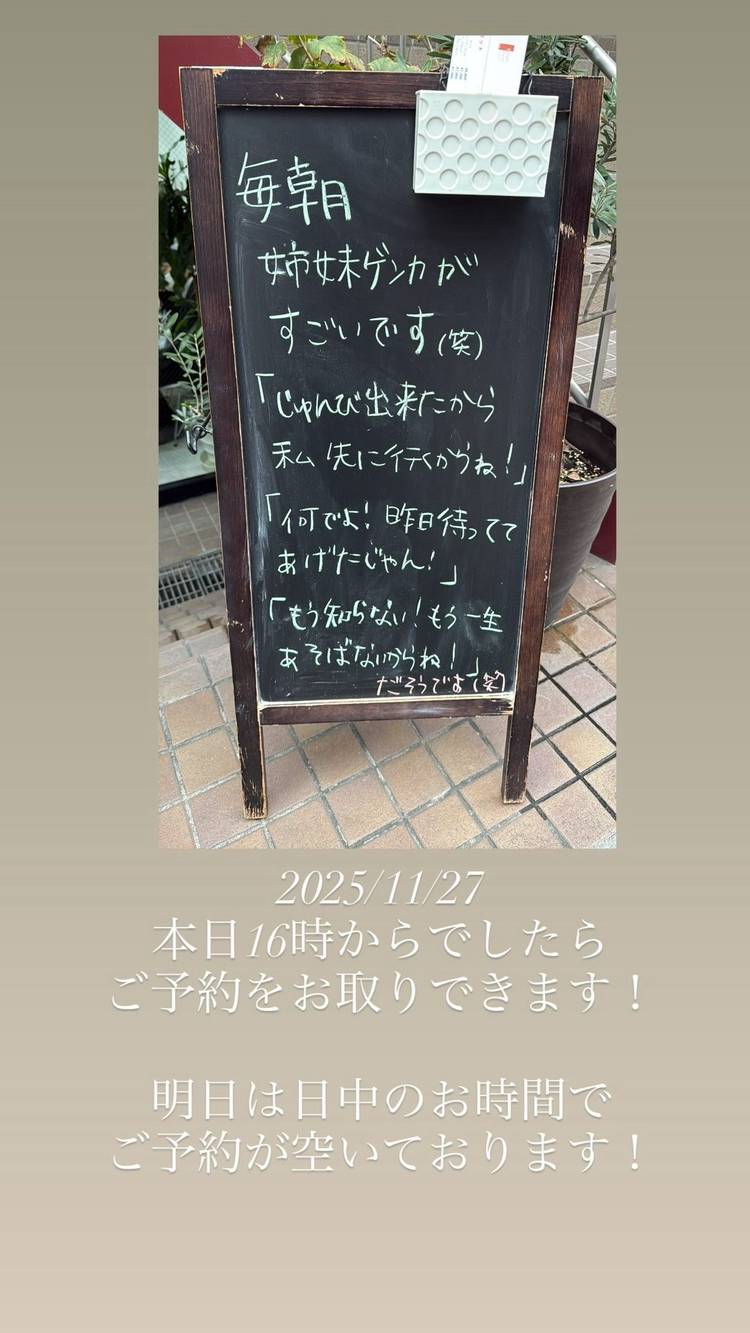 毎朝
姉妹ゲンカが
すごいです(笑)
「じゅんび出来たから
私先に行くからね!」
「何でよ!昨日待ってて
あげたじゃん!」
「もう知らない!もう一生
あそばないからね!」
だそうです(笑)
2025/11/27
本日16時からでしたら
ご予約をお取りできます！
明日は日中のお時間で
ご予約が空いております！